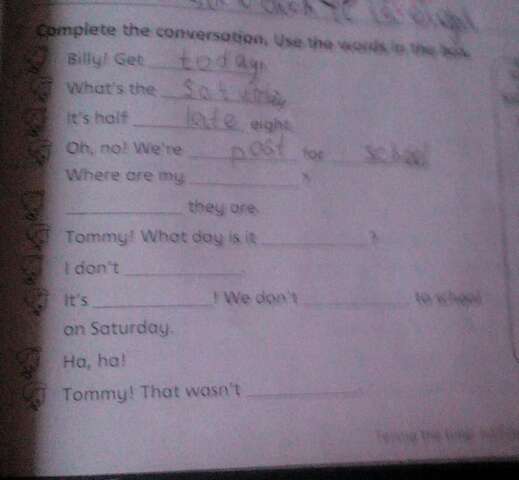 Complete the conversation. Use the words in the box.
Billy! Get today
What's the Saturday
It's half late eight.
Oh, no! We're past for school
Where are my ____________?
____________ they are.
Tommy! What day is it ____________?
I don't ____________.
It's ____________! We don't ____________ to school
on Saturday.
Ha, ha!
Tommy! That wasn't ____________.